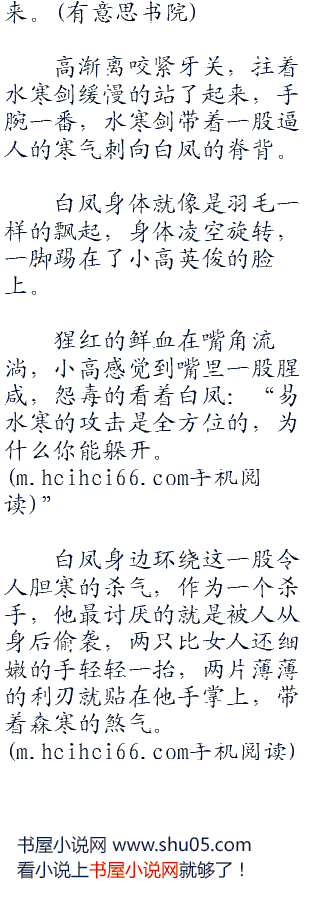 来。(有意思书院)
高渐离咬紧牙关，拄着
水寒剑缓慢的站了起来，手
腕一番，水寒剑带着一股逼
人的寒气刺向白凤的脊背。
白凤身体就像是羽毛一
样的飘起，身体凌空旋转，
一脚踢在了小高英俊的脸
上。
猩红的鲜血在嘴角流
淌，小高感觉到嘴里一股腥
咸，怨毒的看着白凤：“易
水寒的攻击是全方位的，为
什么你能躲开。
(m.hcihci66.com手机阅
读)”
白凤身边环绕这一股令
人胆寒的杀气，作为一个杀
手，他最讨厌的就是被人从
身后偷袭，两只比女人还细
嫩的手轻轻一抬，两片薄薄
的利刃就贴在他手掌上，带
着森寒的煞气。
(m.hcihci66.com手机阅读)
书屋小说网 www.shu05.com
看小说上书屋小说网就够了！